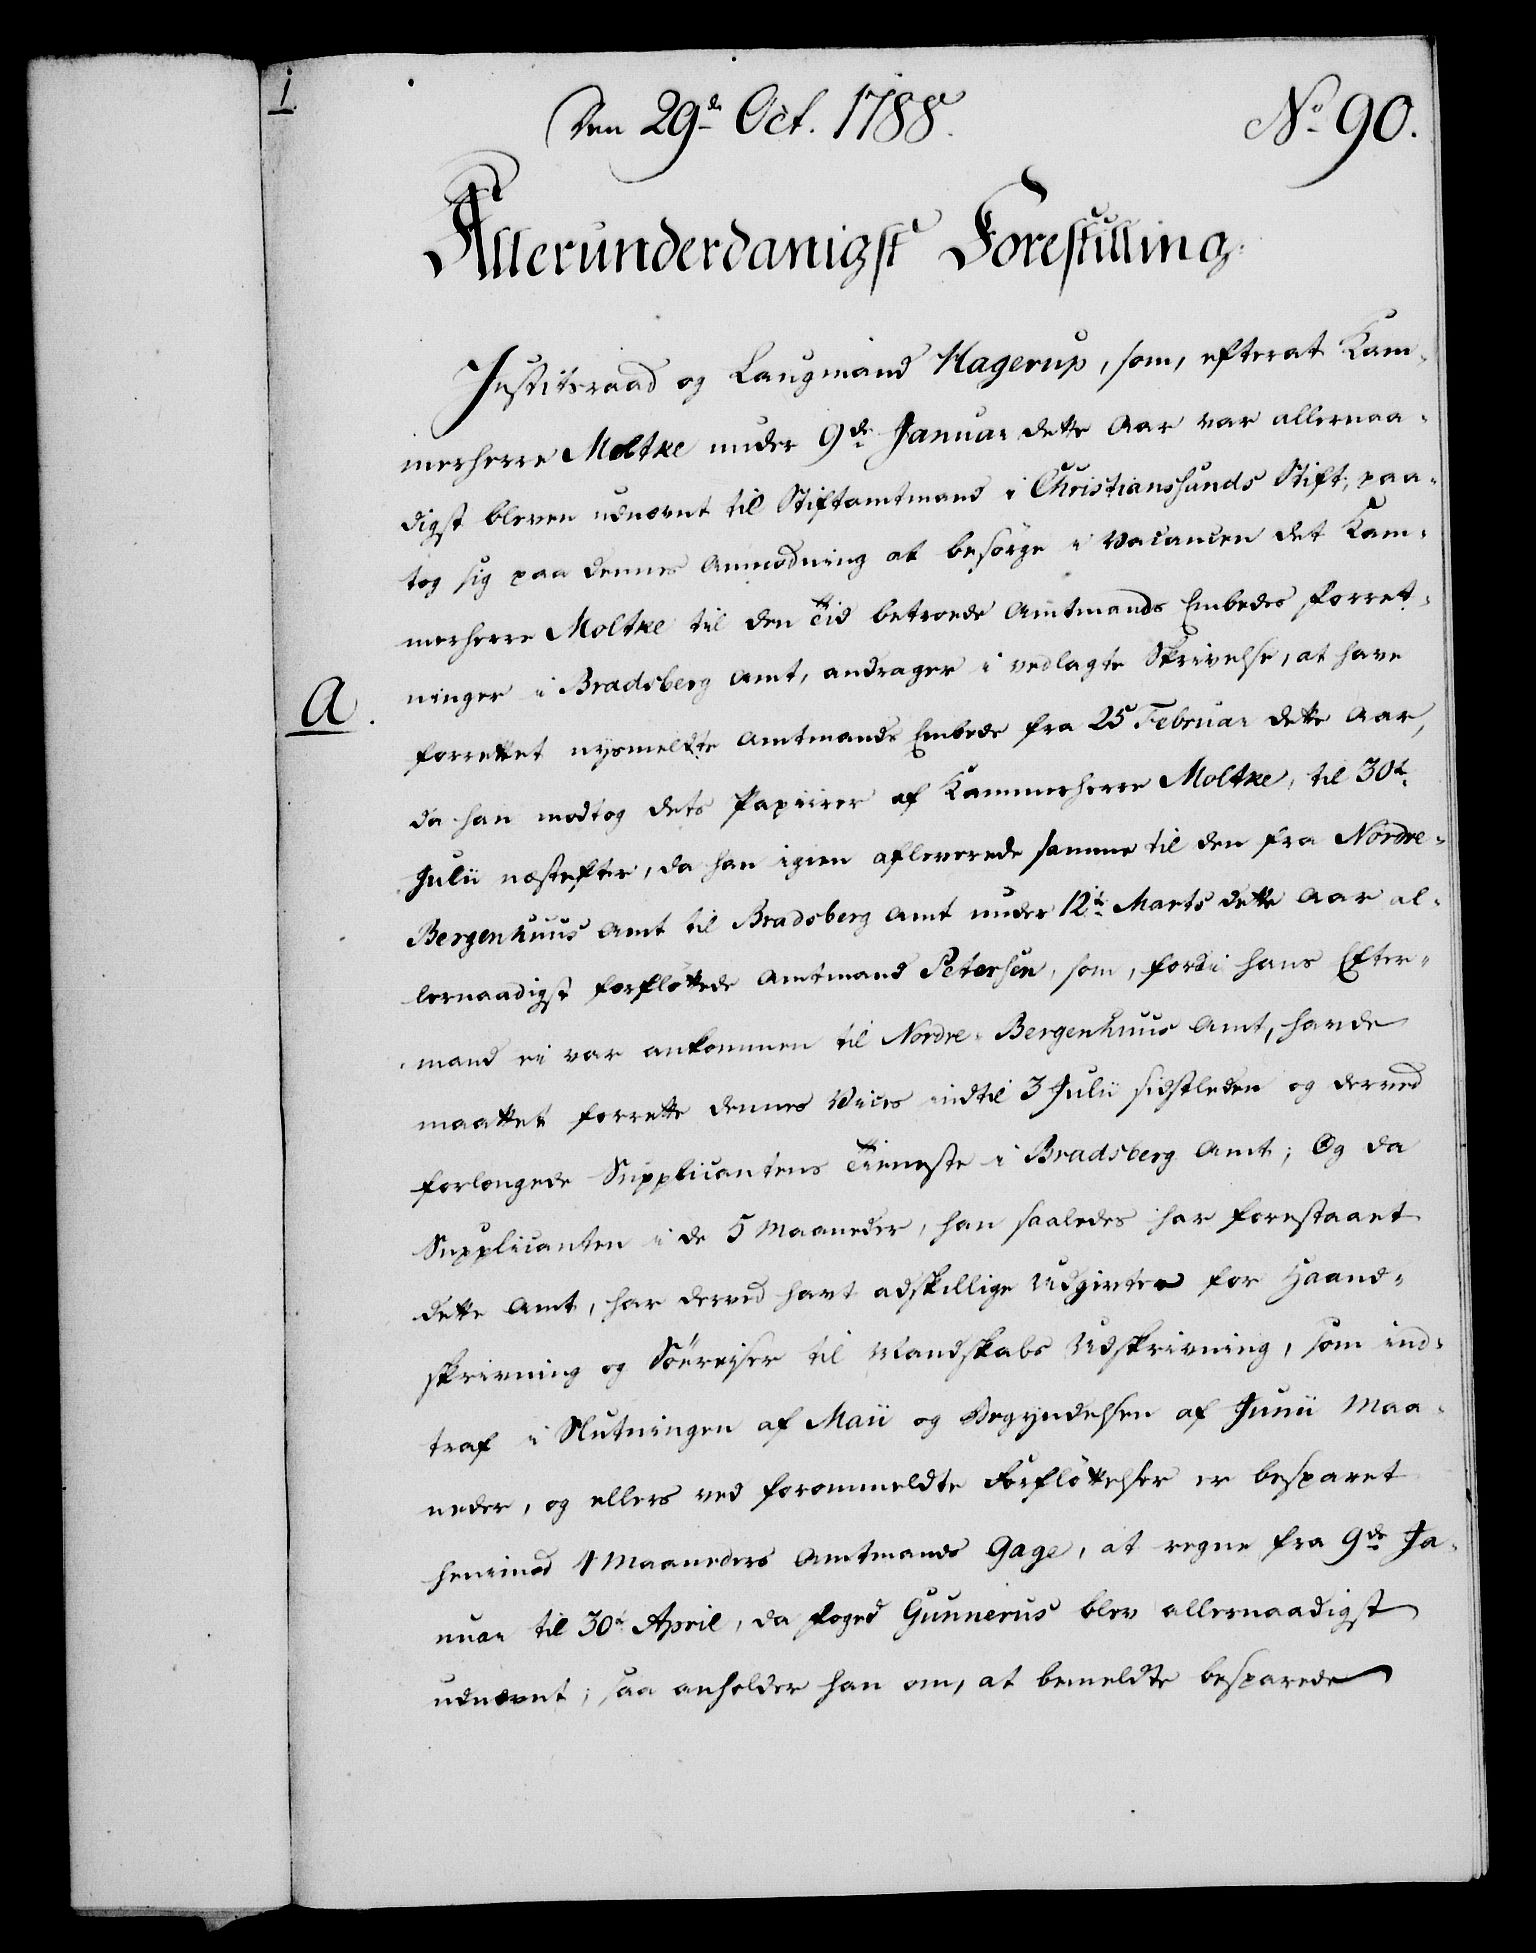 1
Den 29de Oct. 1788. No 90.
Allerunderdanigst Forestilling.
Justitsraad og Laugmand Hagerup, som, efterat Kam-
merherre Moltke under 9de Januar dette Aar var allernaa-
digst bleven udnævnt til Stiftamtmand i Christianssands Stift, paa-
tog sig paa dennes Anmodning at besørge i Vacancen det Kam-
merherre Moltke til den Tid betroede Amtmands Embedes Forret-
ninger i Bradsberg Amt, andrager i vedlagte Skrivelse, at have
A.
forrettet nysmeldte Amtmands Embede fra 25 Februar dette Aar,
da han modtog dets Papiirer af Kammerherre Moltke, til 30te
Julii næstefter, da han igien afleverede samme til den fra Nordre-
Bergenhuus Amt til Bradsberg Amt under 12te Marts dette Aar al-
lernaadigst forflöttede Amtmand Petersen, som, fordi hans Efter-
mand ei var ankommen til Nordre-Bergenhuus Amt, havde
maattet forrette dennes Vices indtil 3 Julii sidstleden og derved
forlengede Supplicantens Tieneste i Bradsberg Amt; Og da
Supplicanten i de 5 Maaneder, han saaledes har forestaaet
dette Amt, har derved havt adskillige Udgivter for Haand-
skrivning og Söereiser til Mandskabs Udskrivning, som ind-
traf i Slutningen af Maii og Begyndelsen af Junii Maa-
neder, og ellers ved forommeldte Forflöttelser er besparet
henimod 4 Maaneders Amtmands Gage, at regne fra 9de Ja-
nuar til 30te April, da Foged Gunnerus blev allernaadigst
udnævnt; saa anholder han om, at bemeldte besparede